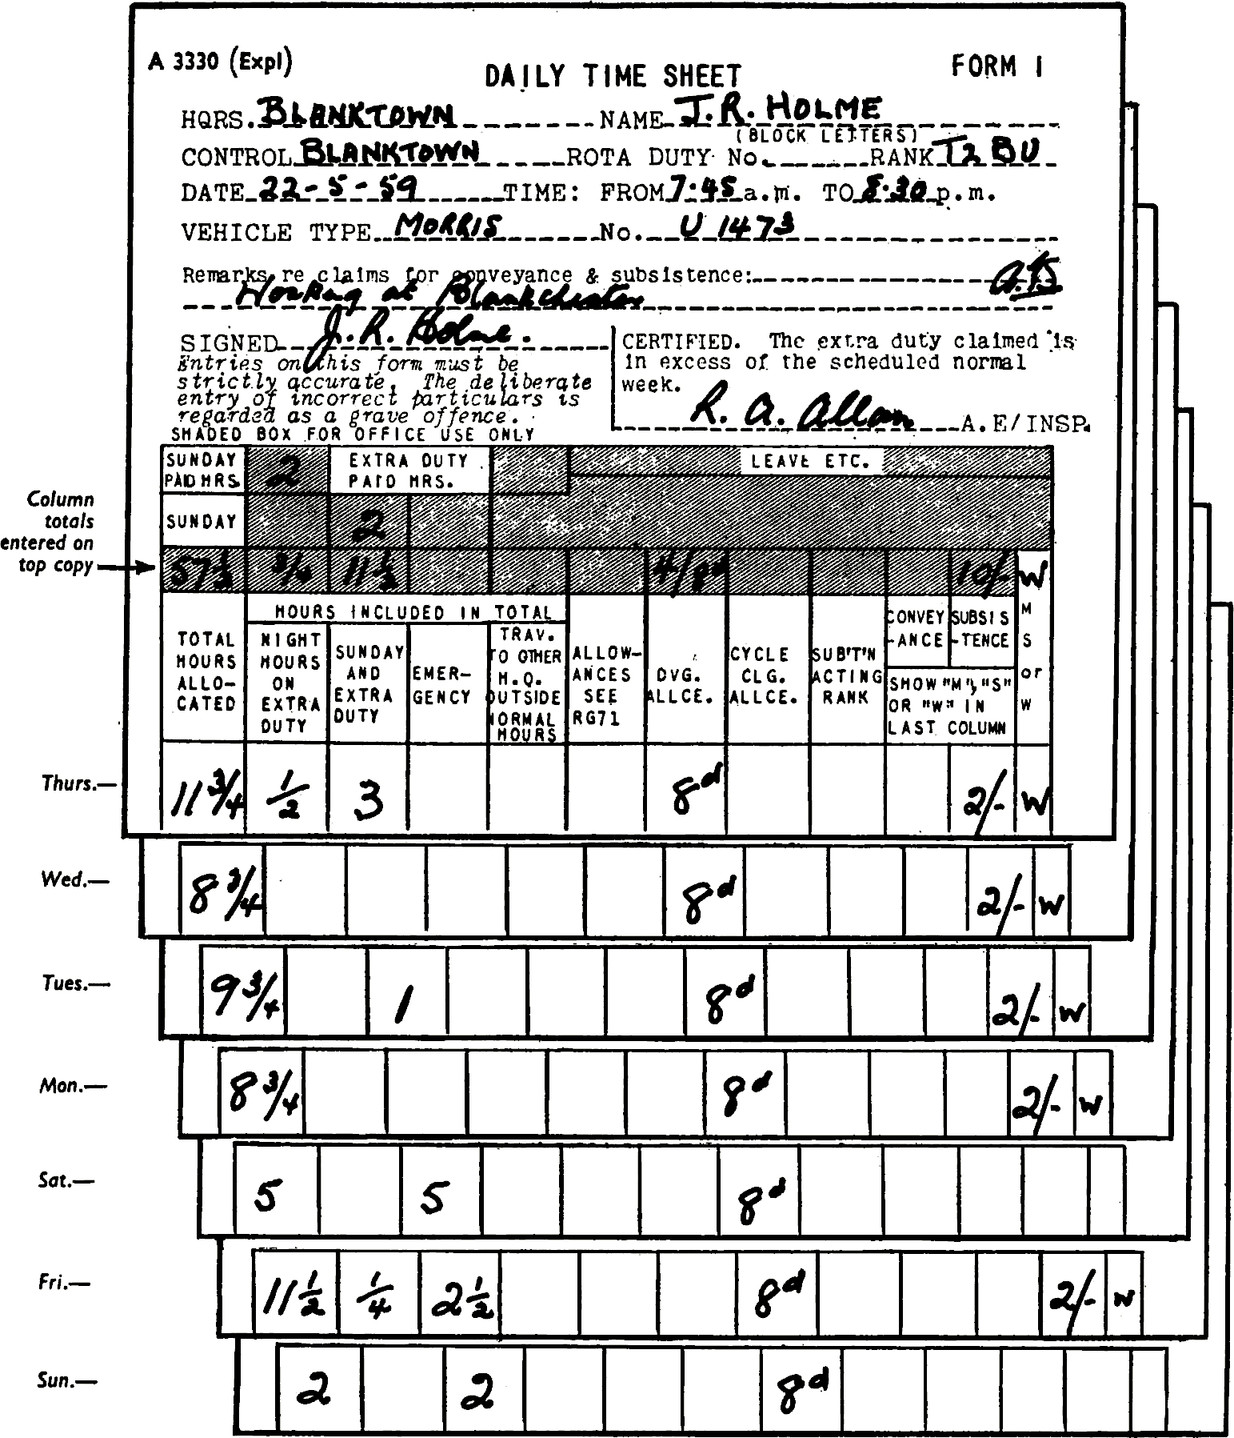 A 3330 (Expl)
DAILY TIME SHEET
FORM 1
HQRS. BLANKTOWN NAME J.R. HOLME
(BLOCK LETTERS)
CONTROL BLANKTOWN ROTA DUTY No. RANK T2 BU
DATE 22-5-59 TIME: FROM 7.45 a.m. TO 8.30 p.m.
VEHICLE TYPE MORRIS No. U 1473
Remarks re claims for conveyance & subsistence:
Working at Blankchester
SIGNED J. R. Holme.
Entries on this form must be
strictly accurate. The deliberate
entry of incorrect particulars is
regarded as a grave offence.
CERTIFIED. The extra duty claimed is
in excess of the scheduled normal
week.
R. A. Allan A.E/INSP.
SHADED BOX FOR OFFICE USE ONLY
SUNDAY PAID HRS. 2 EXTRA DUTY PAID HRS. LEAVE ETC.
SUNDAY 2
Column totals entered on top copy
57½ ¾ 11½ 4/8d 10/- W
HOURS INCLUDED IN TOTAL
TOTAL HOURS ALLO-CATED
NIGHT HOURS ON EXTRA DUTY
SUNDAY AND EXTRA DUTY
EMER-GENCY
TRAV. TO OTHER H.Q. OUTSIDE NORMAL HOURS
ALLOW-ANCES SEE RG71
DVG. ALLCE.
CYCLE CLG. ALLCE.
SUB'T'N ACTING RANK
CONVEY-ANCE
SUBSIS-TENCE
SHOW "M", "S" OR "W" IN LAST COLUMN
M S or W
Thurs.— 11¾ ½ 3 8d 2/- W
Wed.— 8¾ 8d 2/- W
Tues.— 9¾ 1 8d 2/- W
Mon.— 8¾ 8d 2/- W
Sat.— 5 5 8d
Fri.— 11½ ¼ 2½ 8d 2/- W
Sun.— 2 2 8d